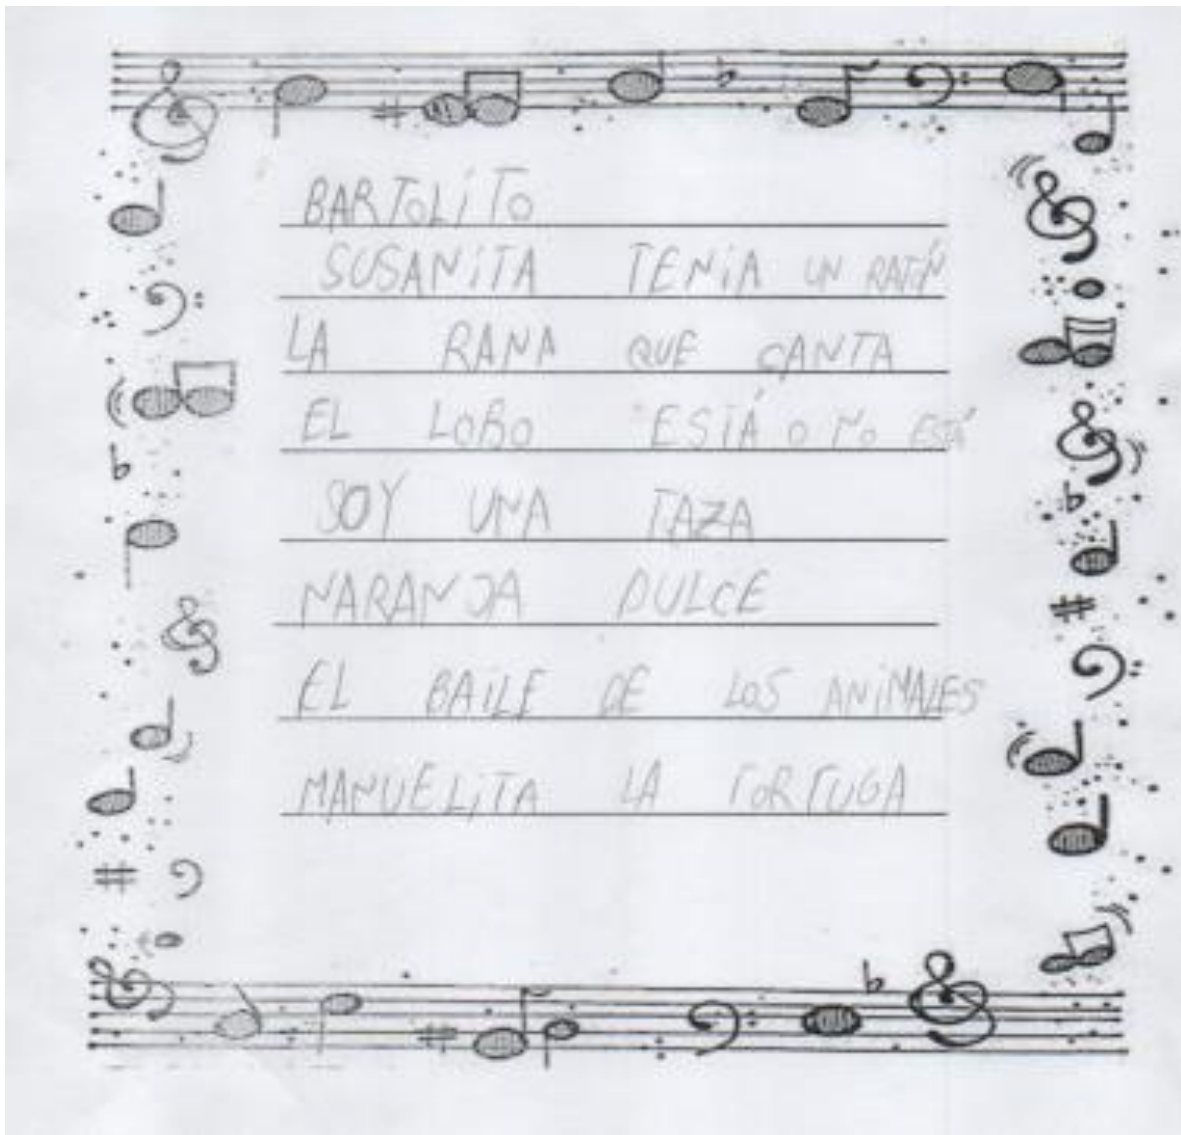 BARTOLiTO
SUSANiTA TENiA UN RATÓN
LA RANA QUE CANTA
EL LOBO ESTÁ O NO ESTÁ
SOY UNA TAZA
NARANJA DULCE
EL BAILE DE LOS ANiMALES
MANUELiTA LA TORTUGA